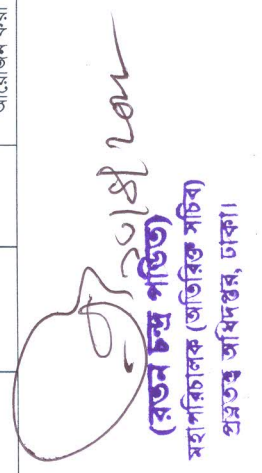 আয়োজন করা
(রতন চন্দ্র পন্ডিত)
মহাপরিচালক (অতিরিক্ত সচিব)
প্রত্নতত্ত্ব অধিদপ্তর, ঢাকা।